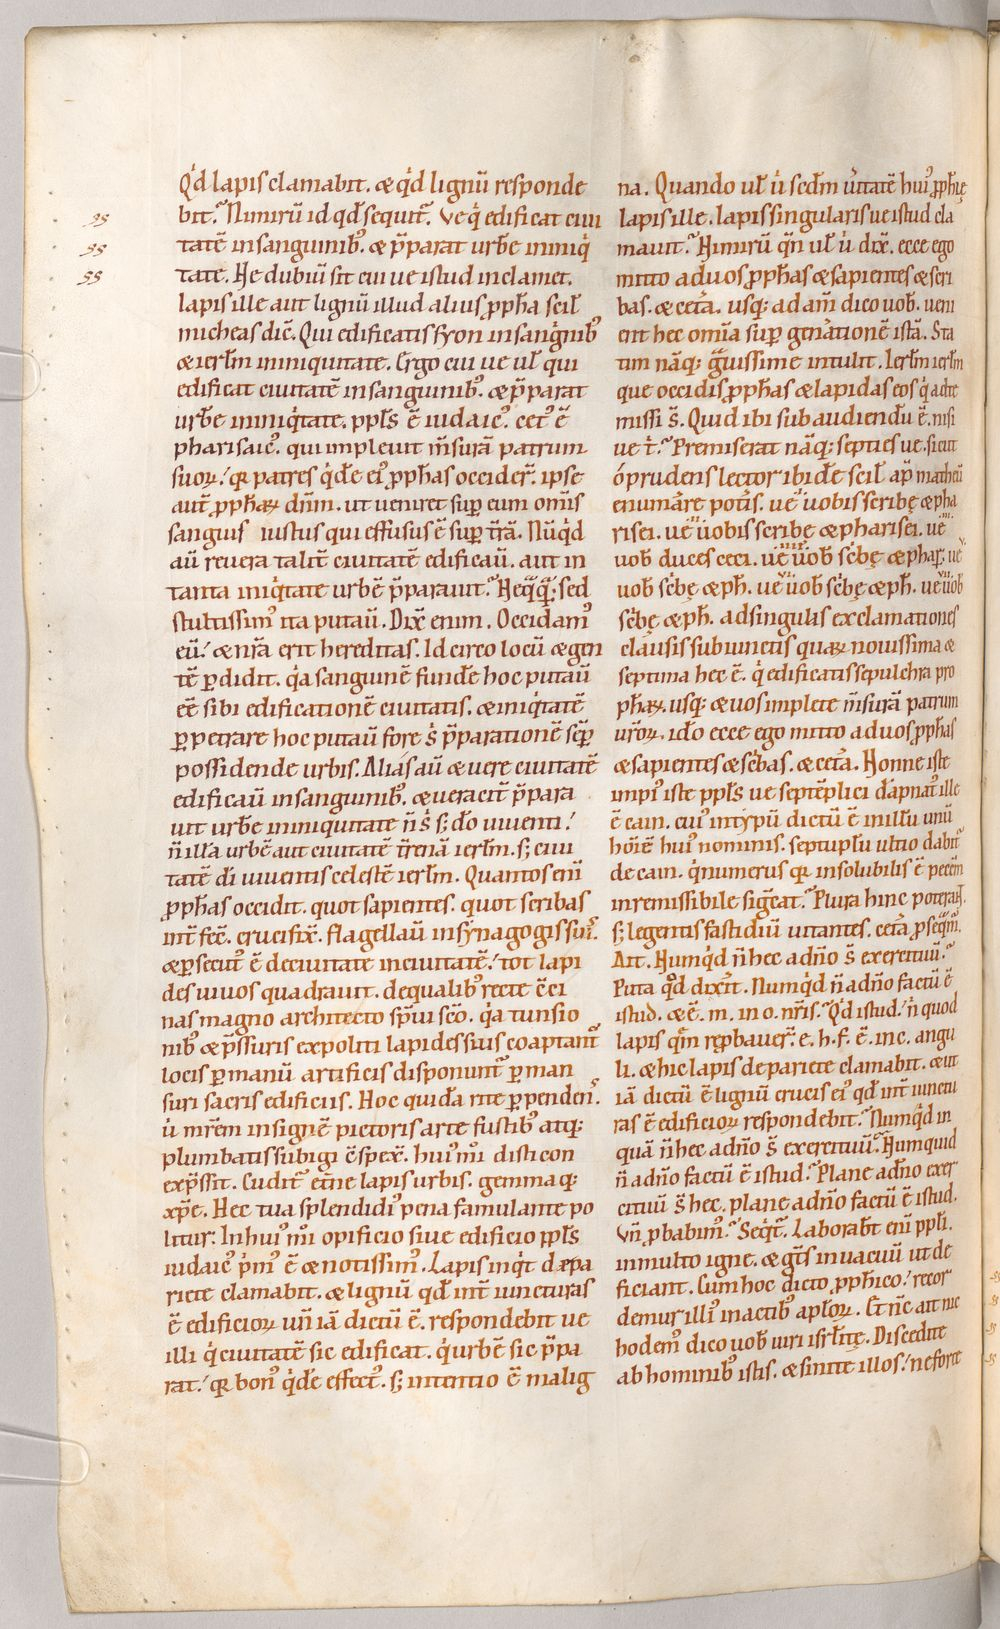 Q'd lapis clamabit. & q'd lignū responde
bit.? Nimirū id qđ sequit̃. Ve q' edificat ciui
tatē in sanguinib'. & p̄parat urbē iniq'
tate. Ne dubiū sit cui ue istud inclamet.
lapis ille aut lignū illud alius ꝓpha scił
micheas dič. Qui edificatis syon in sanguinib'
& ierłm iniquitate. Ergo cui ue uł qui
edificat ciuitatē in sanguinib'. & p̄parat
urbē iniq'tate. ppłs ē iudaic'. cet' ē
pharisaic'. qui impleuit m̄surā patrum
suoꝝ.' qꝛ patres q'dē ei' ꝓphas occider̃. ipse
aut̄ ꝓphaꝝ dn̄m. ut ueniret sup̱ eum om̄is
sanguis iustus qui effusus ē sup̱ t̄rā. Nūq'd
aū reuera talit̄ ciuitatē edificaū. aut in
tanta iniq'tate urbē p̄parauit.? Neq̄q̄; sed
stultissim' ita putaū. Dix̄ enim. Occidam'
eū.' & nr̄a erit hereditas. Idcirco locū & gen
tē ꝑdidit. q'a sanguinē fundē hoc putaū
eē sibi edificationē ciuitatis. & iniq'tatē
ꝑpetrare hoc putaū fore s' p̄parationē semꝑ
possidende urbis. Alias aū & uere ciuitatē
edificaū in sanguinib'. & ueracit̄ p̄para
uit urbē iniquitate n̄ s' s; dō uiuenti.'
n̄ illā urbē aut ciuitatē t̄renā ierłm. s; ciui
tatē dī uiuentis celestē ierłm. Quantos enī
ꝓphas occidit. quot sapientes. quot scribas
int̄fec̄. crucifix̄. flagellaū in synagogis suis.
& ꝑsecut' ē de ciuitate in ciuitatē.' tot lapi
des uiuos quadrauit. de qualib' recte cēci
nas magno architecto spūi scō. q'a tunsio
nib' & p̄ssuris expoliti lapides suis coaptant̃
locis ꝑ manū artificis disponunt̃ ꝑman
suri sacris edificiis. Hoc quidā rite ꝑpendens.
u' mr̄em insignē pictoris arte fustib' atq;
plumbatis subigi c̄spex̄. hui'm̄i disticon
exp̄ssit. Cudit̃ et̄ne lapis urbis. gemmaq;
xp̄c. Hec tua splendidi' pena famulante po
litur: In hui'm̄i opificio siue edificio ppłs
iudaic' p'm' ē & notissim'. Lapis inq't de pa
riete clamabit. & lignū qđ int̄ iuncturas
ē edificioꝝ un̄ iā dictū ē. respondebit ue
illi q' ciuitatē sic edificat. q' urbē sic p̄pa
rat.' qꝛ bon' q'dē effect'. s; intentio ē malig
na. Quando uł u' sedm u'itatē hui' ꝓphię
lapis ille. lapis singularis ue istud cla
mauit.? Nimirū q̄n uł u' dix̄. ecce ego
mitto ad uos ꝓphas & sapientes & scri
bas. & cetā. usq; ad am̄ dico uob̄. ueni
ent hec omīa sup̱ gen̄ationē istā. Sta
tim nāq; g̃uissime intulit. Ierłm ierłm
que occidis ꝓphas & lapidas eos q' ad te
missi s̄. Quid ibi subaudiendū ē. nisi
ue t'.? Premiserat nāq; septies ue. sicut
ó prudens lector ibidē scił ap̄ matheū
enumāre pot̄is. ue uobis scribę & pha
risei. ue uobis scribę & pharisei. ue
uob̄ duces ceci. ue uob̄ sc'bę & phaȓ; ue
uob̄ sc'bę & ph̄. ue uob̄ sc'bę & ph̄. ue uob̄
sc'bę & ph̄. ad singulas exclamationes
clausis subiunctis quaꝝ nouissima &
septima hec ē. q' edificatis sepulchra pro
phaꝝ. usq; & uos implete m̄surā patrum
ur̄oꝝ. idō ecce ego mitto ad uos ꝓphas
& sapientes & sc'bas. & cetā. Nonne iste
impi' iste ppłs ue septēplici dāpnat' ille
ē cain. cui' in typū dictū ē in illū unū
hōiē hui' nominis. septuplū ultio dabit̃
de cain. q' numerus qꝛ insolubilis ē peccm̄
inremissibile sig̃cat.? Plura hinc poteram'.
s; legentis fastidiū uitantes. cetā ꝓseq̄m'.
Ait. Numq'd n̄ hec a dn̄o s̄ exercituū.?
Puta q'd dix̄it. Numq'd n̄ a dn̄o factū ē
istud. & ē. m. in o. nr̄is.? Q'd istud.' n' quod
lapis q̄m rep̱bauer̃. e. h. f. ē. in c. angu
li. & hic lapis de pariete clamabit. & ut
iā dictū ē lignū crucis ei' qđ int̄ iunctu
ras ē edificioꝝ respondebit.? Numq'd in
quā n̄ hec a dn̄o s̄ exercituū.? Numquid
n̄ a dn̄o factū ē istud.? Plane a dn̄o exer
cituū s̄ hec. plane a dn̄o factū ē istud.
Vn̄ ꝓbabim'.? Seq't̃. Laborabt̄ enī ppłi.
in multo igne. & g̃ts in uacuū ut de
ficiant. Cum hoc dicto ꝓphico.' recor
demur illi' in actib' apłoꝝ. Et n̄c ait
hodem' dico uob̄ uiri isrłitę. Discedite
ab hominib' istis. & sinite illos.' ne forte